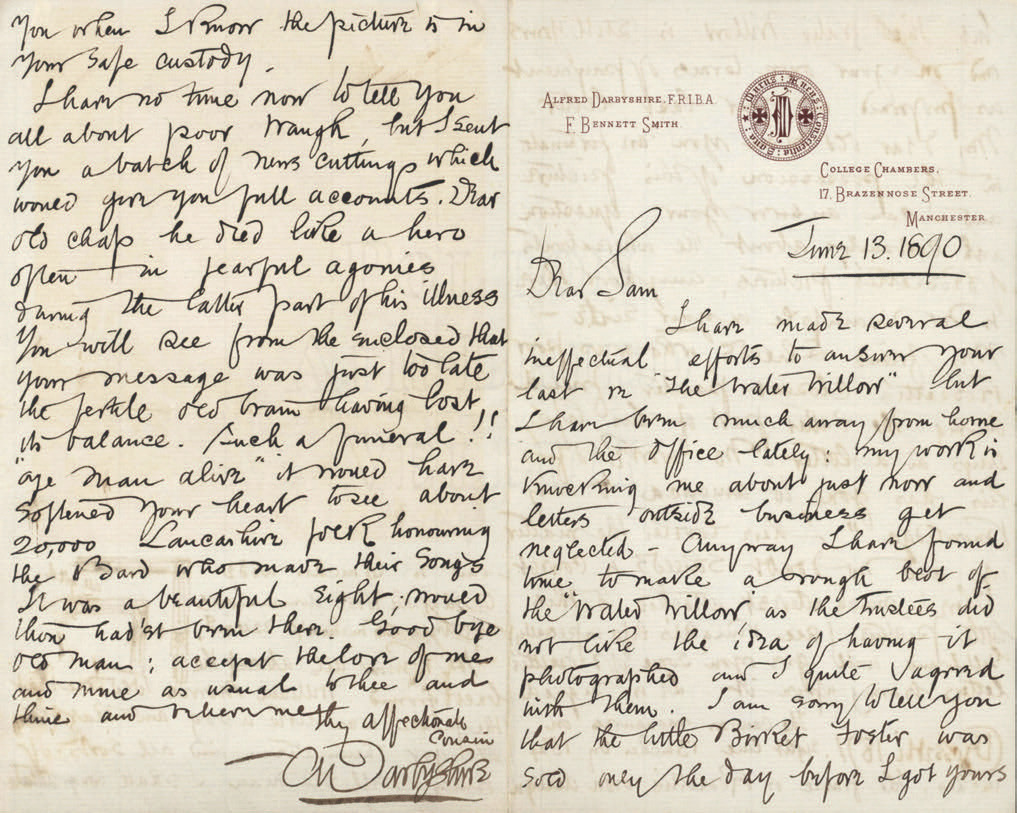 you when I know the picture is in
your safe custody.
I have no time now to tell you
all about poor Waugh, but I sent
you a batch of news cuttings which
would give you full accounts. Dear
old chap he died like a hero
often in fearful agonies
during the latter part of his illness
You will see from the enclosed that
your message was just too late
the fertile old brain having lost
its balance. Such a funeral!!
"aye man alive" it would have
softened your heart to see about
20,000 Lancashire folk honouring
the Bard who made their songs
It was a beautiful sight; would
thou had'st been there. Good bye
old man; accept the love of me
and mine as usual to thee and
thine and believe me thy affectionate
Cousin
Darbyshire
ALFRED DARBYSHIRE, F.R.I.B.A.
F. BENNETT SMITH.
Murus Aeneus Conscientia Sana
COLLEGE CHAMBERS,
17, BRAZENNOSE STREET,
MANCHESTER
June 13. 1890
Dear Sam
I have made several
ineffectual efforts to answer your
last re "The Water Willow" but
I have been much away from home
and the office lately: my work is
knocking me about just now and
letters outside business get
neglected – Anyway I have found
time to make a rough
the "Water Willow" as the trustees did
not like the idea of having it
photographed and I quite agreed
with them. I am sorry to tell you
that the little Birket Foster was
sold only the day before I got yours